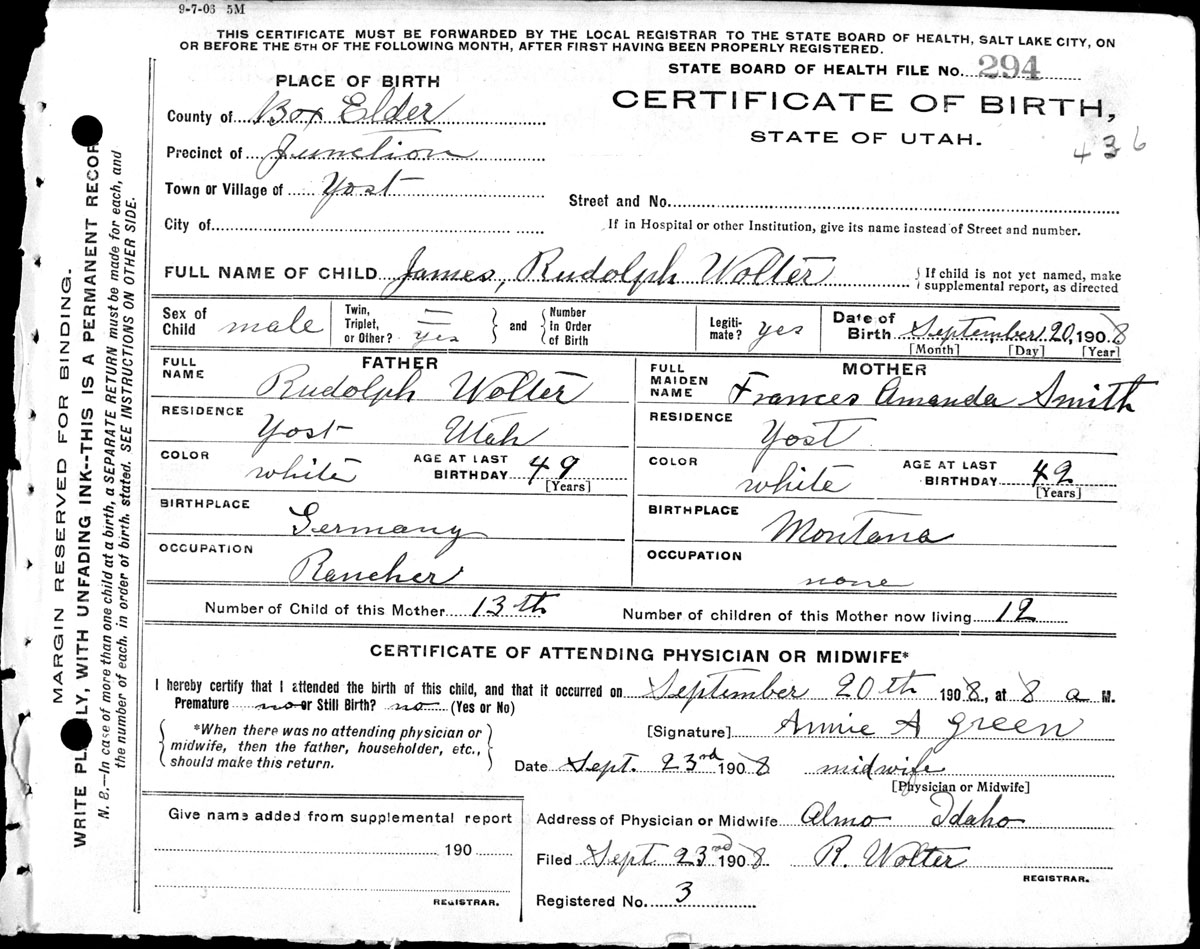 9-7-06 5M
THIS CERTIFICATE MUST BE FORWARDED BY THE LOCAL REGISTRAR TO THE STATE BOARD OF HEALTH, SALT LAKE CITY, ON
OR BEFORE THE 5TH OF THE FOLLOWING MONTH, AFTER FIRST HAVING BEEN PROPERLY REGISTERED.
STATE BOARD OF HEALTH FILE No. 294
PLACE OF BIRTH
CERTIFICATE OF BIRTH,
STATE OF UTAH.
436
County of Box Elder
Precinct of Junction
Town or Village of Yost
Street and No.
City of
If in Hospital or other Institution, give its name instead of Street and number.
FULL NAME OF CHILD James, Rudolph Wolter
If child is not yet named, make
supplemental report, as directed
Sex of Child male
Twin, Triplet, or Other? yes
and Number In Order of Birth
Legiti-mate? yes
Date of Birth September 20, 1908
[Month] [Day] [Year]
FATHER
FULL NAME Rudolph Wolter
RESIDENCE Yost Utah
COLOR white AGE AT LAST BIRTHDAY 49 [Years]
BIRTHPLACE Germany
OCCUPATION Rancher
MOTHER
FULL MAIDEN NAME Frances Amanda Smith
RESIDENCE Yost
COLOR white AGE AT LAST BIRTHDAY 42 [Years]
BIRTHPLACE Montana
OCCUPATION none
Number of Child of this Mother 13th Number of children of this Mother now living 12
CERTIFICATE OF ATTENDING PHYSICIAN OR MIDWIFE*
I hereby certify that I attended the birth of this child, and that it occurred on September 20th 1908, at 8 a M.
Premature no or Still Birth? no (Yes or No)
*When there was no attending physician or
midwife, then the father, householder, etc.,
should make this return.
[Signature] Annie A Green
Date Sept. 23rd 1908 midwife
[Physician or Midwife]
Give name added from supplemental report
190
REGISTRAR.
Address of Physician or Midwife Almo Idaho
Filed Sept 23rd 1908 R. Wolter
REGISTRAR.
Registered No. 3
MARGIN RESERVED FOR BINDING.
WRITE PL LY, WITH UNFADING INK--THIS IS A PERMANENT RECOR
N. B.—In case of more than one child at a birth, a SEPARATE RETURN must be made for each, and
the number of each, in order of birth, stated. SEE INSTRUCTIONS ON OTHER SIDE.